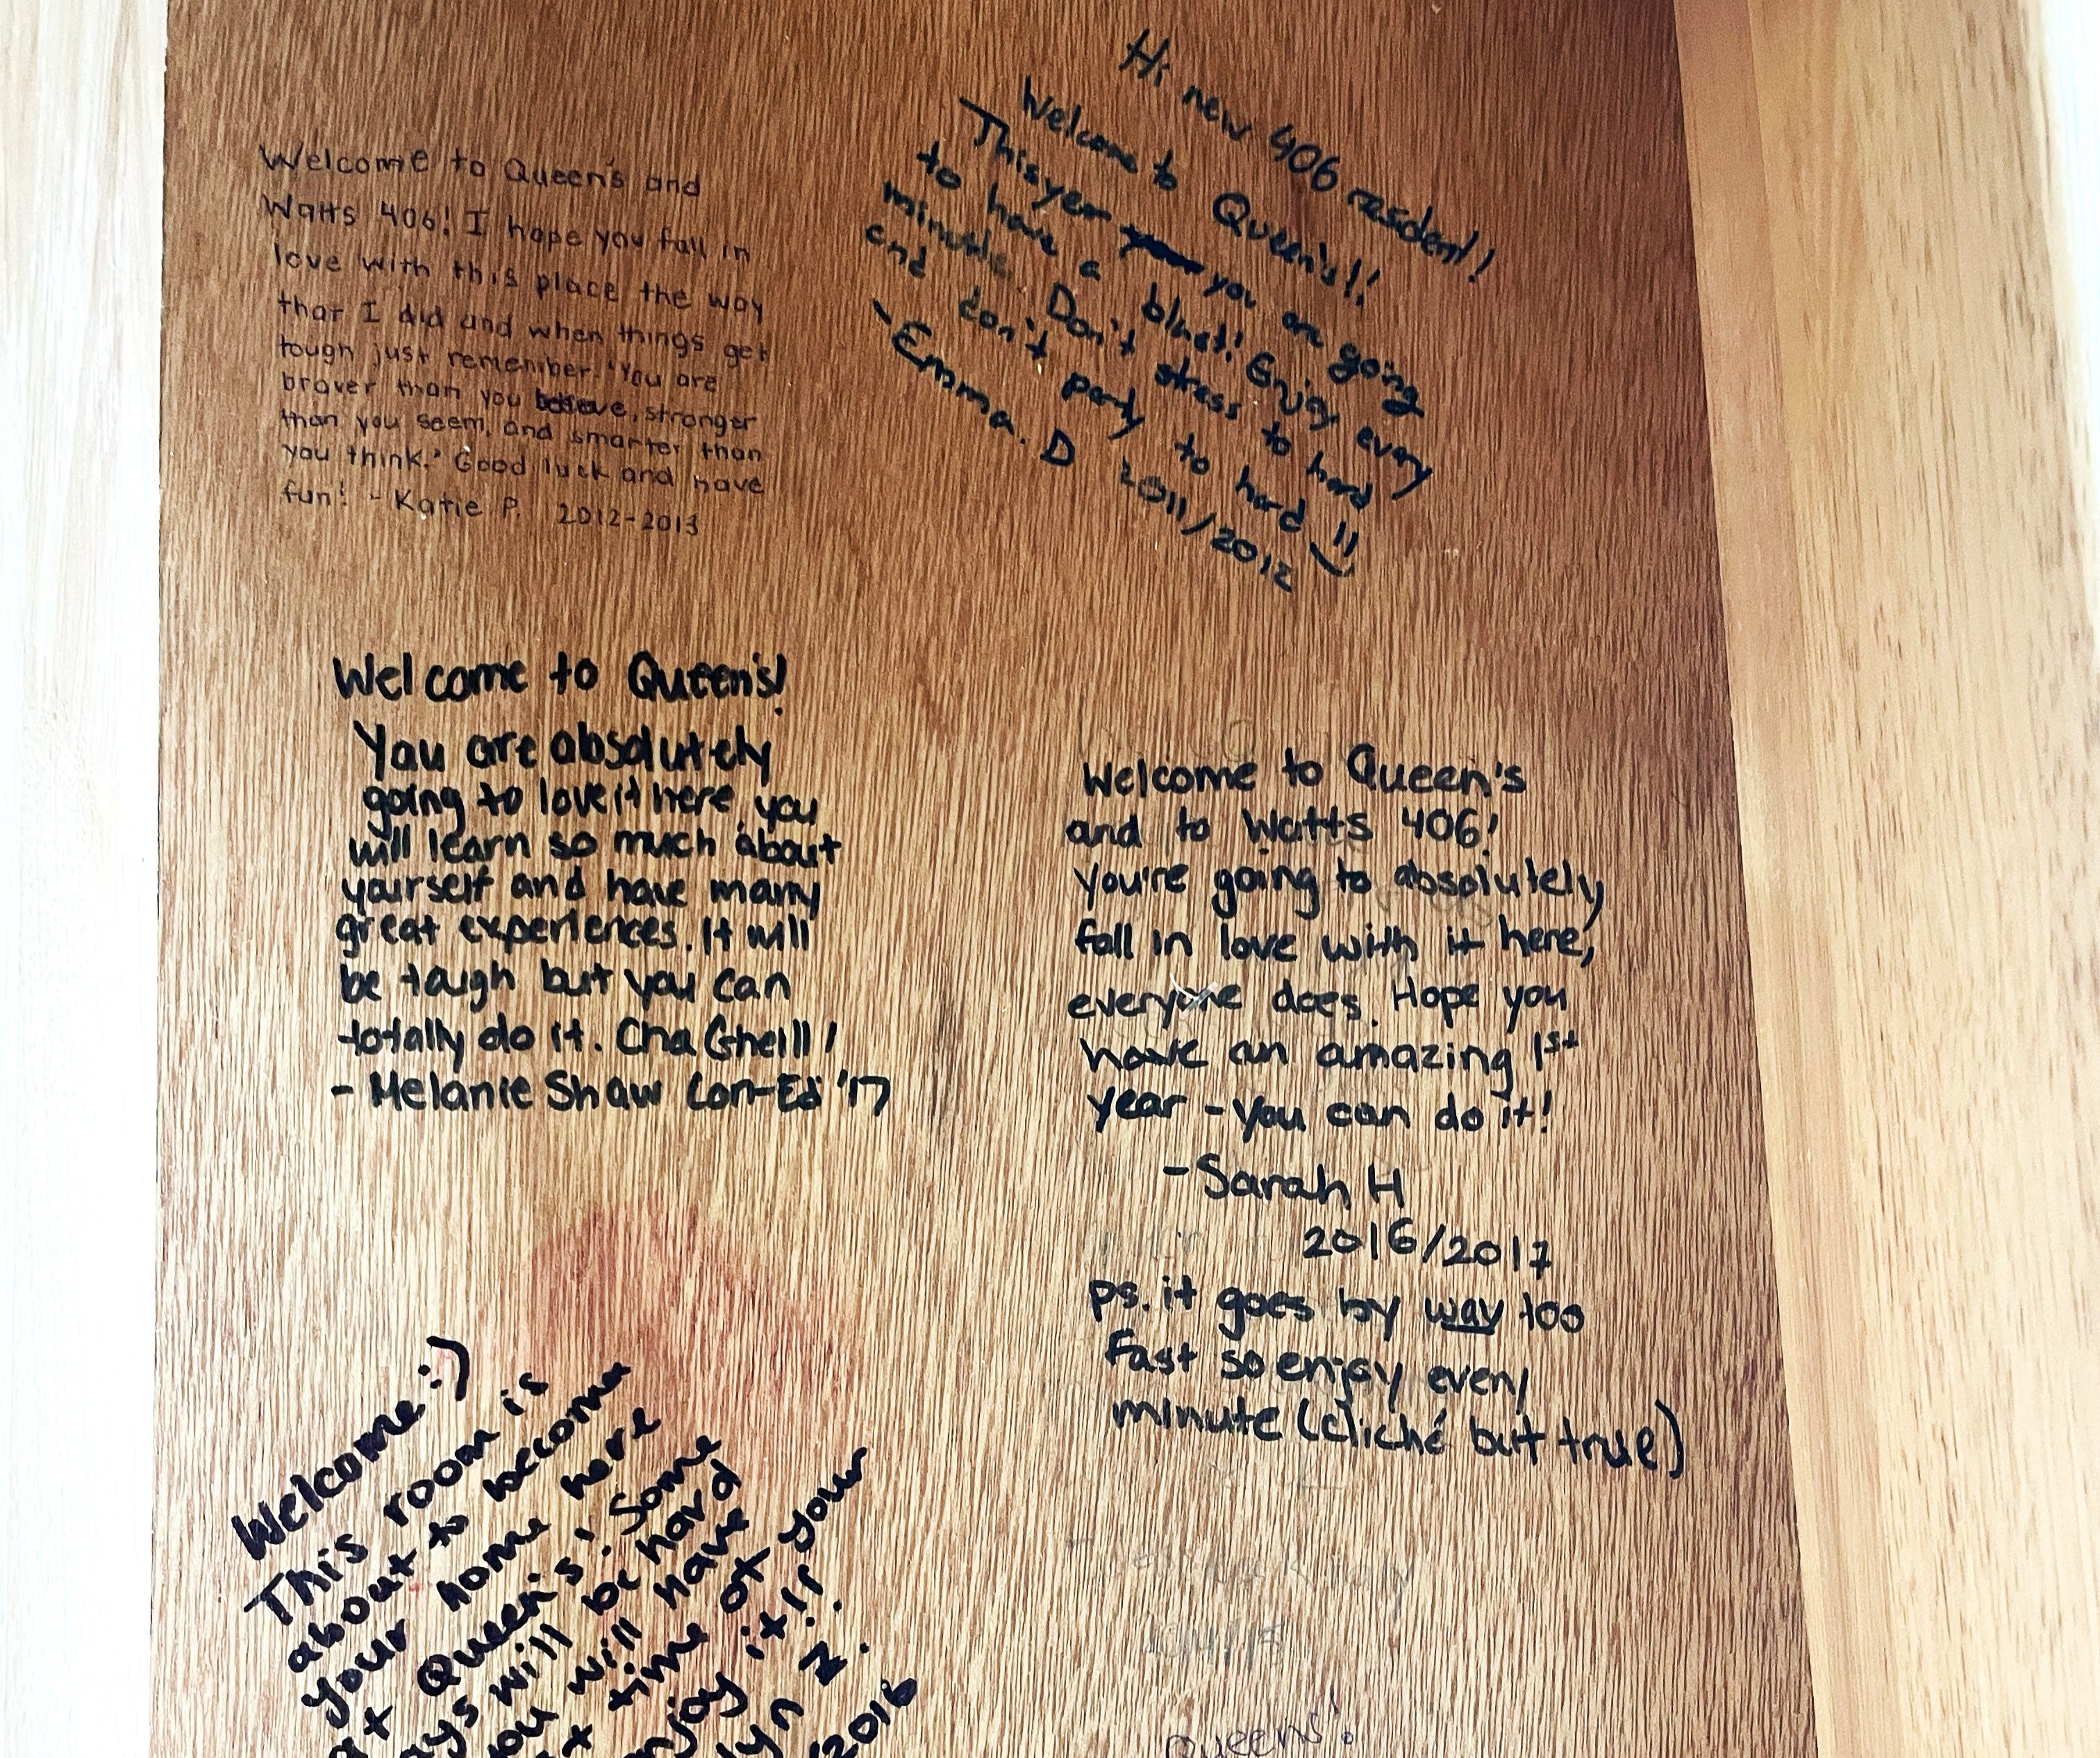 Welcome to Queen's and
Watts 406! I hope you fall in
love with this place the way
that I did and when things get
tough just remember: "You are
braver than you believe, stronger
than you seem, and smarter than
you think." Good luck and have
fun! - Katie P. 2012-2013
Hi new 406 resident!
Welcome to Queen's!!
This year you are going
to have a blast! Enjoy every
minute. Don't stress to hard
and don't party to hard !!
- Emma. D 2011/2012
Welcome to Queen's!
You are absolutely
going to love it here, you
will learn so much about
yourself and have many
great experiences. It will
be tough but you can
totally do it. Cha Gheill!
- Melanie Shaw Con-Ed '17
Welcome to Queen's
and to Watts 406!
You're going to absolutely
fall in love with it here,
everyone does. Hope you
have an amazing 1st
year - you can do it!
- Sarah H
2016/2017
ps. it goes by way too
fast so enjoy every
minute (cliché but true)
Welcome :)
This room is
about to become
your home here
at Queen's! Some
days will be hard
you will have
time of your
enjoy it!!
N.
2016
14/15
Queens!